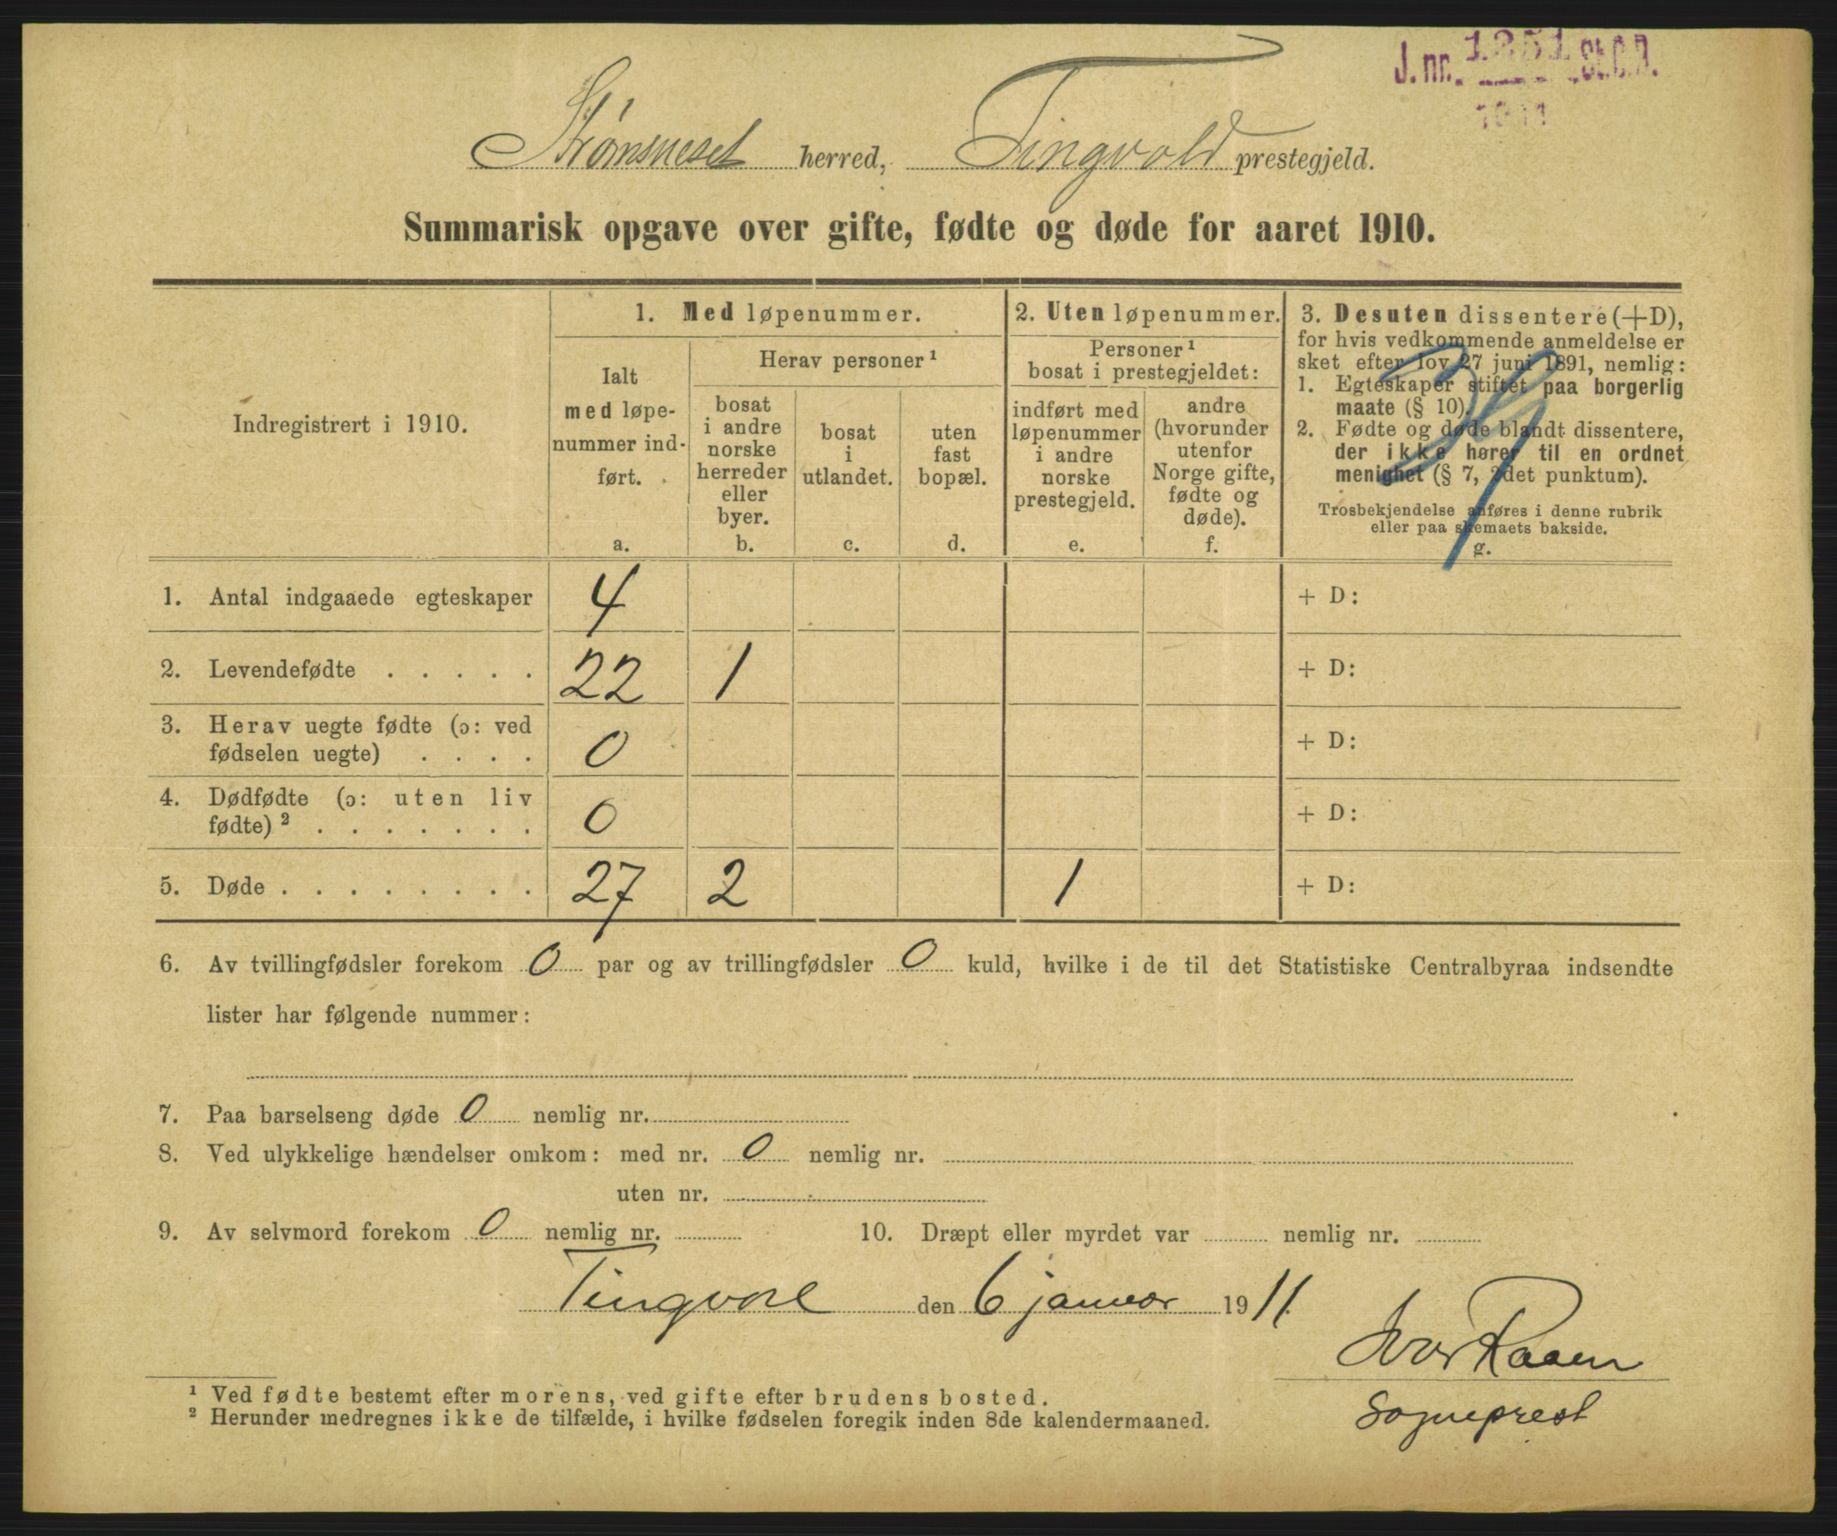 J.nr. 1251 St.C.B.
1911
Strømsneset herred, Tingvold prestegjeld.
Summarisk opgave over gifte, fødte og døde for aaret 1910.
Indregistrert i 1910.
1. Med løpenummer.
Ialt
med løpe-
nummer ind-
ført.
a.
Herav personer ¹
bosat
i andre
norske
herreder
eller
byer.
b.
bosat
i
utlandet.
c.
uten
fast
bopæl.
d.
2. Uten løpenummer.
Personer ¹
bosat i prestegjeldet:
indført med
løpenummer
i andre
norske
prestegjeld.
e.
andre
(hvorunder
utenfor
Norge gifte,
fødte og
døde).
f.
3. Desuten dissentere (+D),
for hvis vedkommende anmeldelse er
sket efter lov 27 juni 1891, nemlig:
1. Egteskaper stiftet paa borgerlig
maate (§ 10).
2. Fødte og døde blandt dissentere,
der ikke hører til en ordnet
menighet (§ 7, 2det punktum).
Trosbekjendelse anføres i denne rubrik
eller paa skemaets bakside.
g.
1. Antal indgaaede egteskaper 4 + D:
2. Levendefødte . . . . . 22 1 + D:
3. Herav uegte fødte (ɔ: ved
fødselen uegte) . . . . 0 + D:
4. Dødfødte (ɔ: uten liv
fødte) ² . . . . . . . 0 + D:
5. Døde . . . . . . . . 27 2 1 + D:
6. Av tvillingfødsler forekom 0 par og av trillingfødsler 0 kuld, hvilke i de til det Statistiske Centralbyraa indsendte
lister har følgende nummer:
7. Paa barselseng døde 0 nemlig nr.
8. Ved ulykkelige hændelser omkom: med nr. 0 nemlig nr.
uten nr.
9. Av selvmord forekom 0 nemlig nr. 10. Dræpt eller myrdet var nemlig nr.
Tingvoll den 6 januar 1911.
Ivar Raaen
Sogneprest
¹ Ved fødte bestemt efter morens, ved gifte efter brudens bosted.
² Herunder medregnes ikke de tilfælde, i hvilke fødselen foregik inden 8de kalendermaaned.